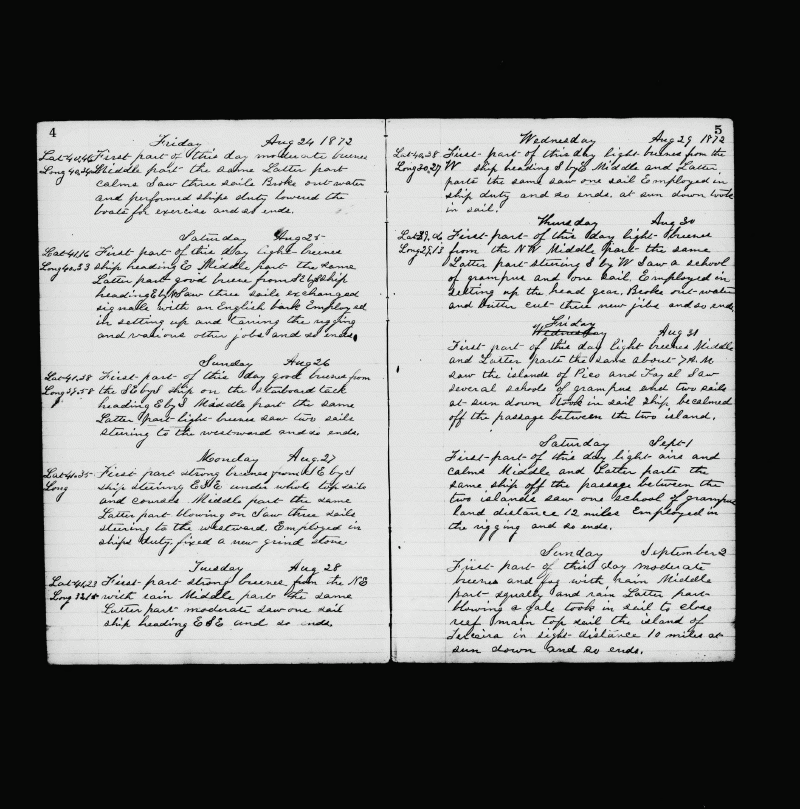 4
Friday Aug 24 1872
Lat 40,46 First part of this day moderate breeses
Long 40,24 Middle part the same Latter part
calms Saw three sails Broke out water
and performed ships duty lowered the
boats for exercise and so ends.
Saturday Aug 25
Lat 41,16 First part of this day light breeses
Long 40,33 ship heading E Middle part the same
Latter part good breese from S E by S ship
heading E by N Saw three sails exchanged
signals with an English bark Employed
in setting up and taring the rigging
and various other jobs and so ends,
Sunday Aug 26
Lat 41,38 First part of this day good breeses from
Long 37,58 the S E by S ship on the starboard tack
heading E by S Middle part the same
Latter part light breeses saw two sails
stearing to the westward and so ends.
Monday Aug 27
Lat 41,35 First part strong breeses from N E by S
Long ship stearing E S E under whole top sails
and courses Middle part the same
Latter part blowing on Saw three sails
stearing to the westward. Employed in
ships duty, fixed a new grind stone
Tuesday Aug 28
Lat 41,23 First part strong breeses from the NE
Long 32,15 with rain Middle part the same
Latter part moderate saw one sail
ship heading E S E and so ends.
5
Wednesday Aug 29 1872
Lat 40,28 First part of this day light breeses from the
Long 30,27 W ship heading S by E Middle and Latter
parts the same saw one sail Employed in
ship duty and so ends. at sun down took
in sail.
Thursday Aug 30
Lat 39,06 First part of this day light breeses
Long 29,13 from the NW Middle part the same
Latter part stearing S by W Saw a school
of grampus and one sail. Employed in
setting up the head gear. Broke out water
and cutter cut three new jibs and so ends,
Friday
Wednesday Aug 31
First part of this day light breeses Middle
and Latter parts the same about 7 A.M
saw the islands of Pico and Fayal Saw
several schools of grampus and two sails
at sun down took in sail ship becalmed
off the passage between the two island.
Saturday Sept 1
First part of this day light airs and
calms Middle and Latter parts the
same ship off the passage between the
two islands saw one school of grampus
land distance 12 miles Employed in
the rigging and so ends.
Sunday September 2
First part of this day moderate
breeses and fog with rain Middle
part squally and rain Latter part
blowing a gale took in sail to close
reef main top sail the island of
Terceira in sight distance 10 miles at
sun down and so ends.